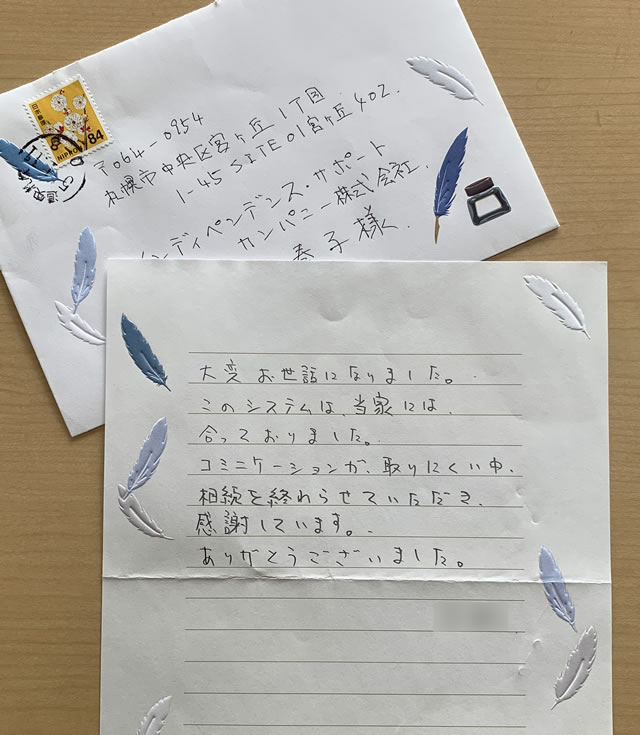 日本郵便
84
NIPPON
〒064-0954
札幌市中央区宮ヶ丘1丁目
1-45 SITE01宮ヶ丘402.
ンディペンデンス・サポート
カンパニー株式会社.
春子様.
大変お世話になりました。
このシステムは、当家には、
合っておりました。
コミニケーションが、取りにくい中、
相続を終わらせていただき、
感謝しています。
ありがとうございました。